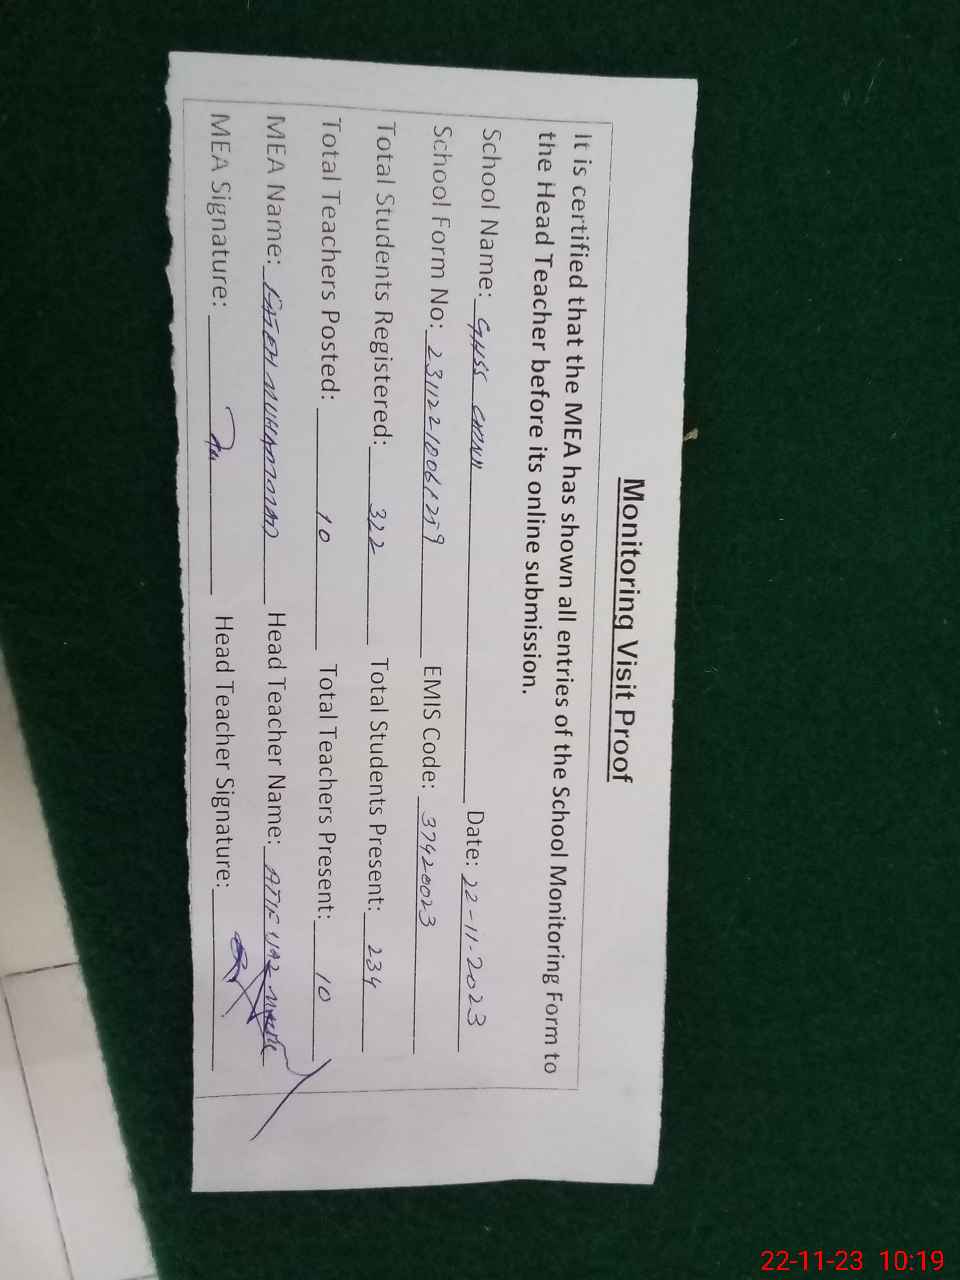 Monitoring Visit Proof
It is certified that the MEA has shown all entries of the School Monitoring Form to
the Head Teacher before its online submission.
School Name: GHSS Date: 22-11-2023
School Form No: EMIS Code: 37420023
Total Students Registered: 322 Total Students Present: 234
Total Teachers Posted: 10 Total Teachers Present: 10
MEA Name: FATEH MUHAMMAD Head Teacher Name: ATIF
MEA Signature: Head Teacher Signature:
22-11-23 10:19